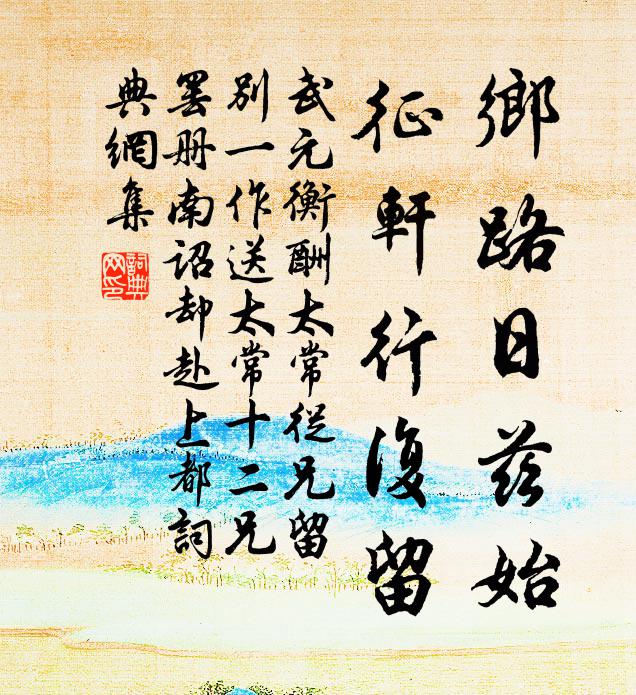 鄉路日茲始
征軒行復留
武元衡酬太常從兄留
別一作送太常十二兄
罢册南诏却赴上都詞
典網集
詞典網印